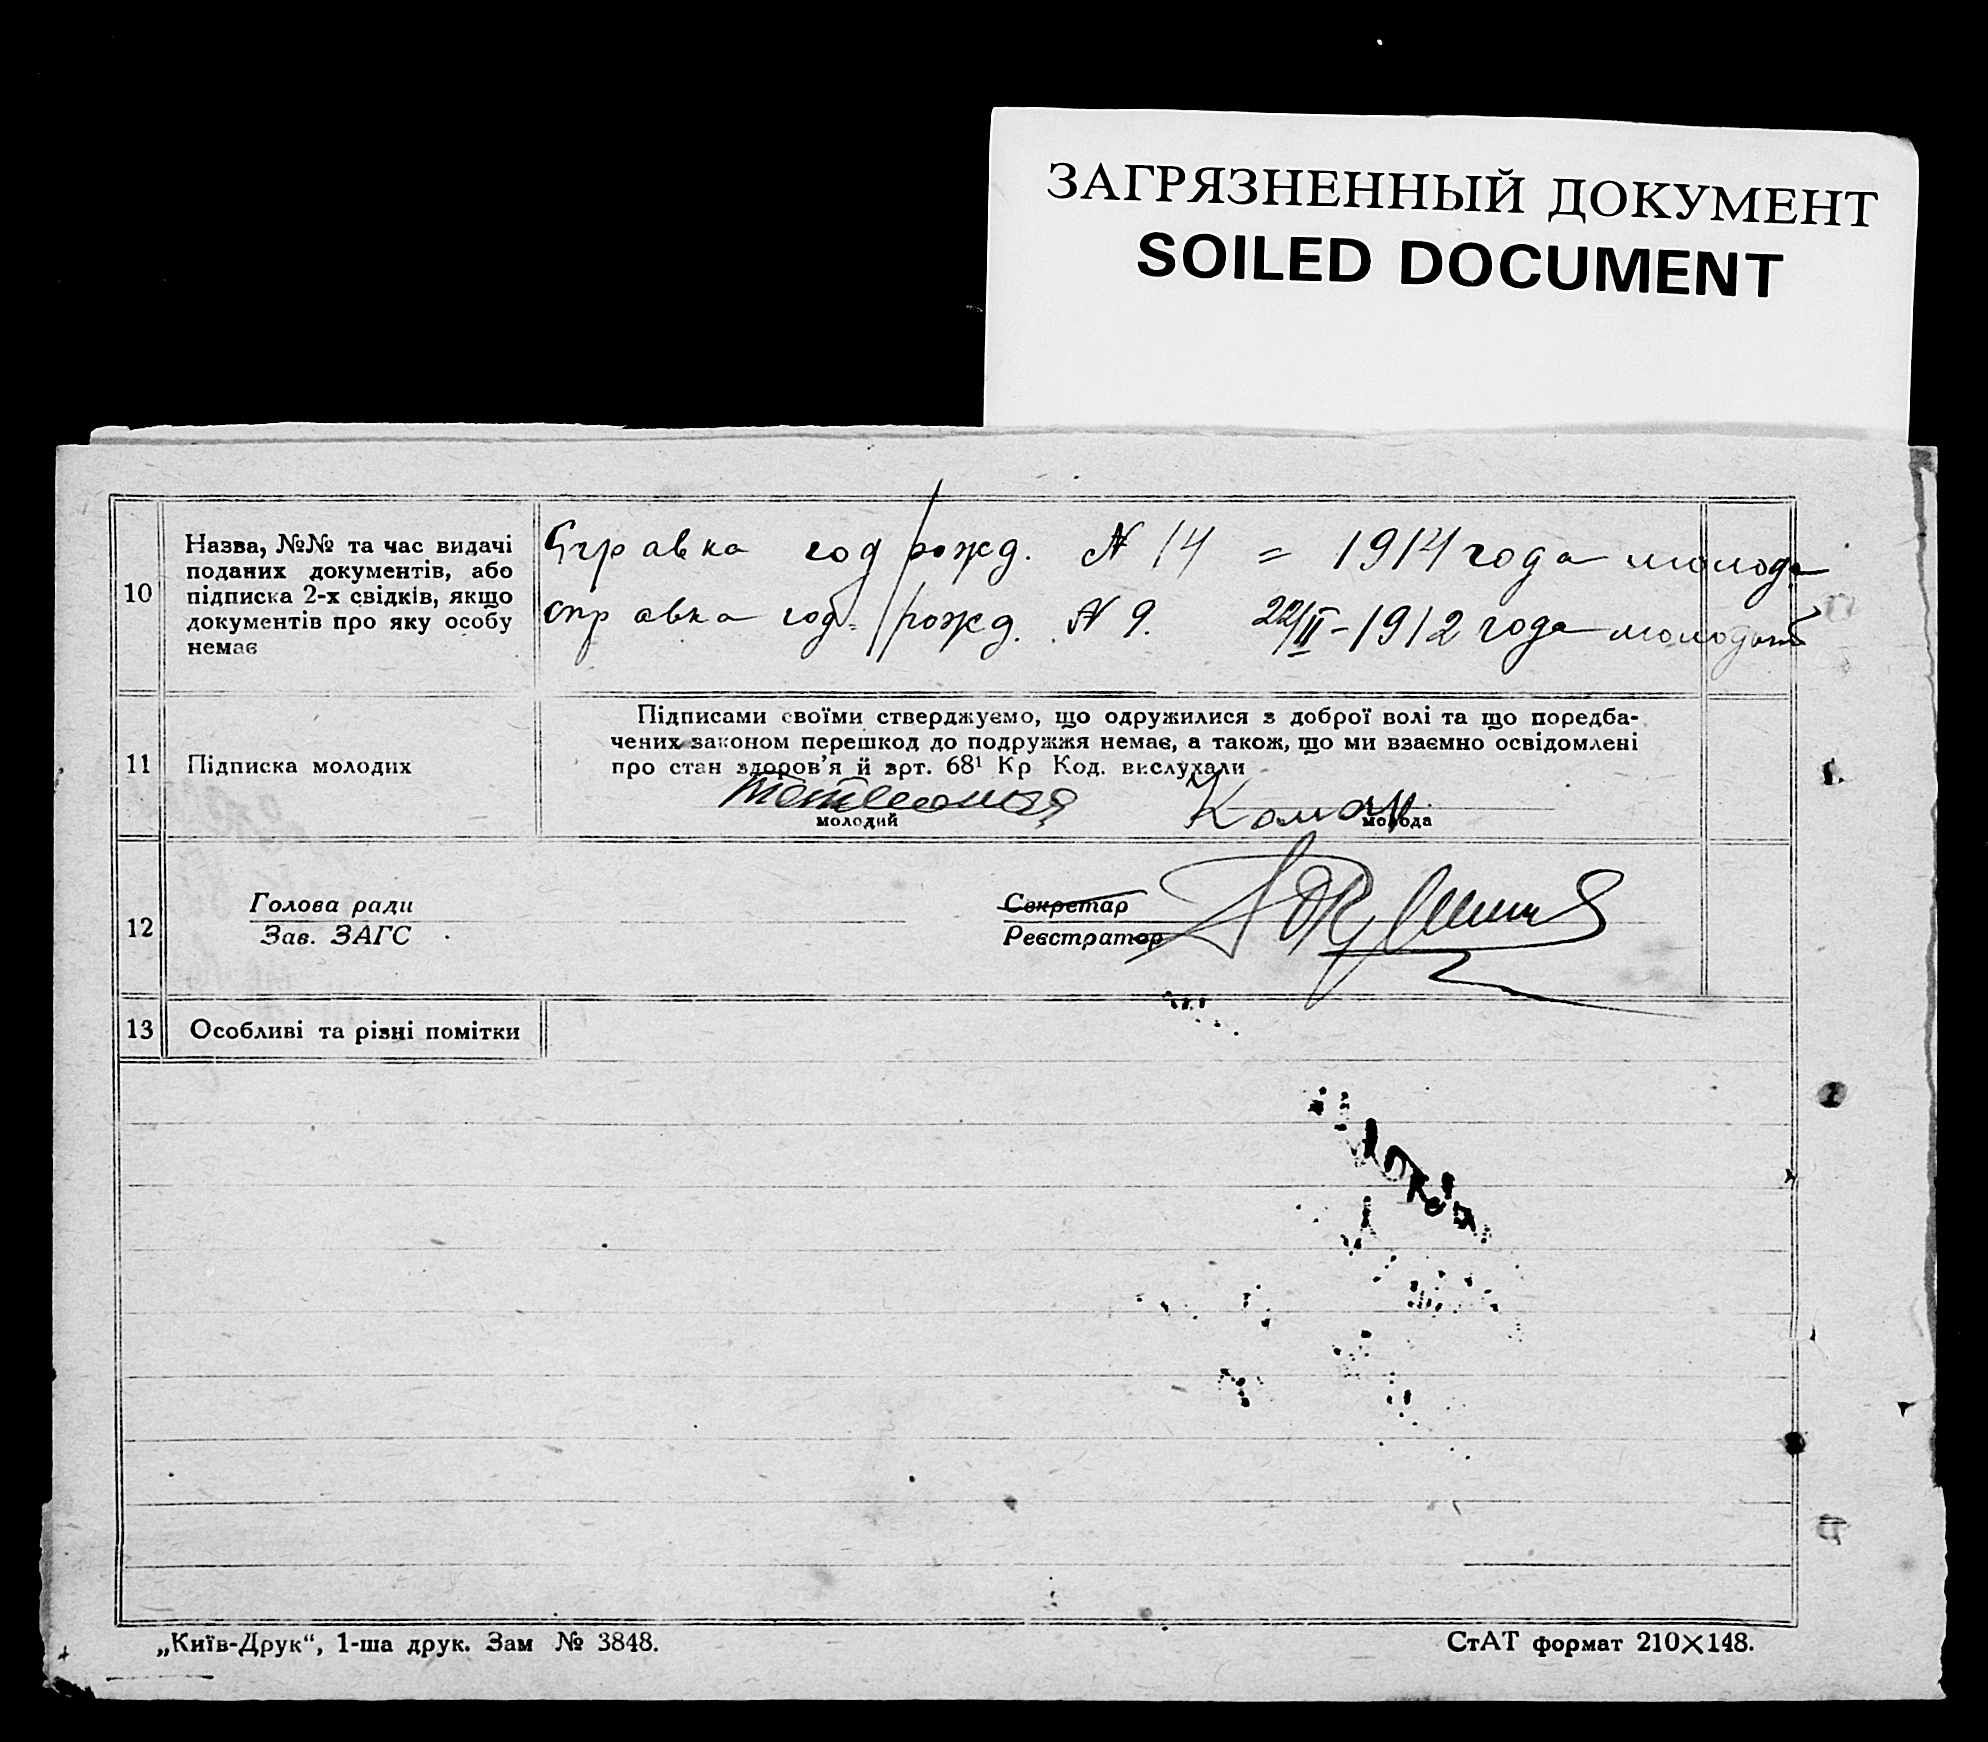 ЗАГРЯЗНЕННЫЙ ДОКУМЕНТ
SOILED DOCUMENT
10
Назва, №№ та час видачі
поданих документів, або
підписка 2-х свідків, якщо
документів про яку особу
немає
Справка год/рожд. № 14 = 1914 года молода
справка год./рожд. № 9. 22/II-1912 года молодый
11
Підписка молодих
Підписами своїми стверджуємо, що одружилися з доброї волі та що передба-
чених законом перешкод до подружжя немає, а також, що ми взаємно освідомлені
про стан здоров'я й арт. 68¹ Кр Код. вислухали
молодий
молода
12
Голова ради
Зав. ЗАГС
Секретар
Реєстратор
13
Особливі та різні помітки
„Київ-Друк“, 1-ша друк. Зам № 3848.
СтАТ формат 210×148.